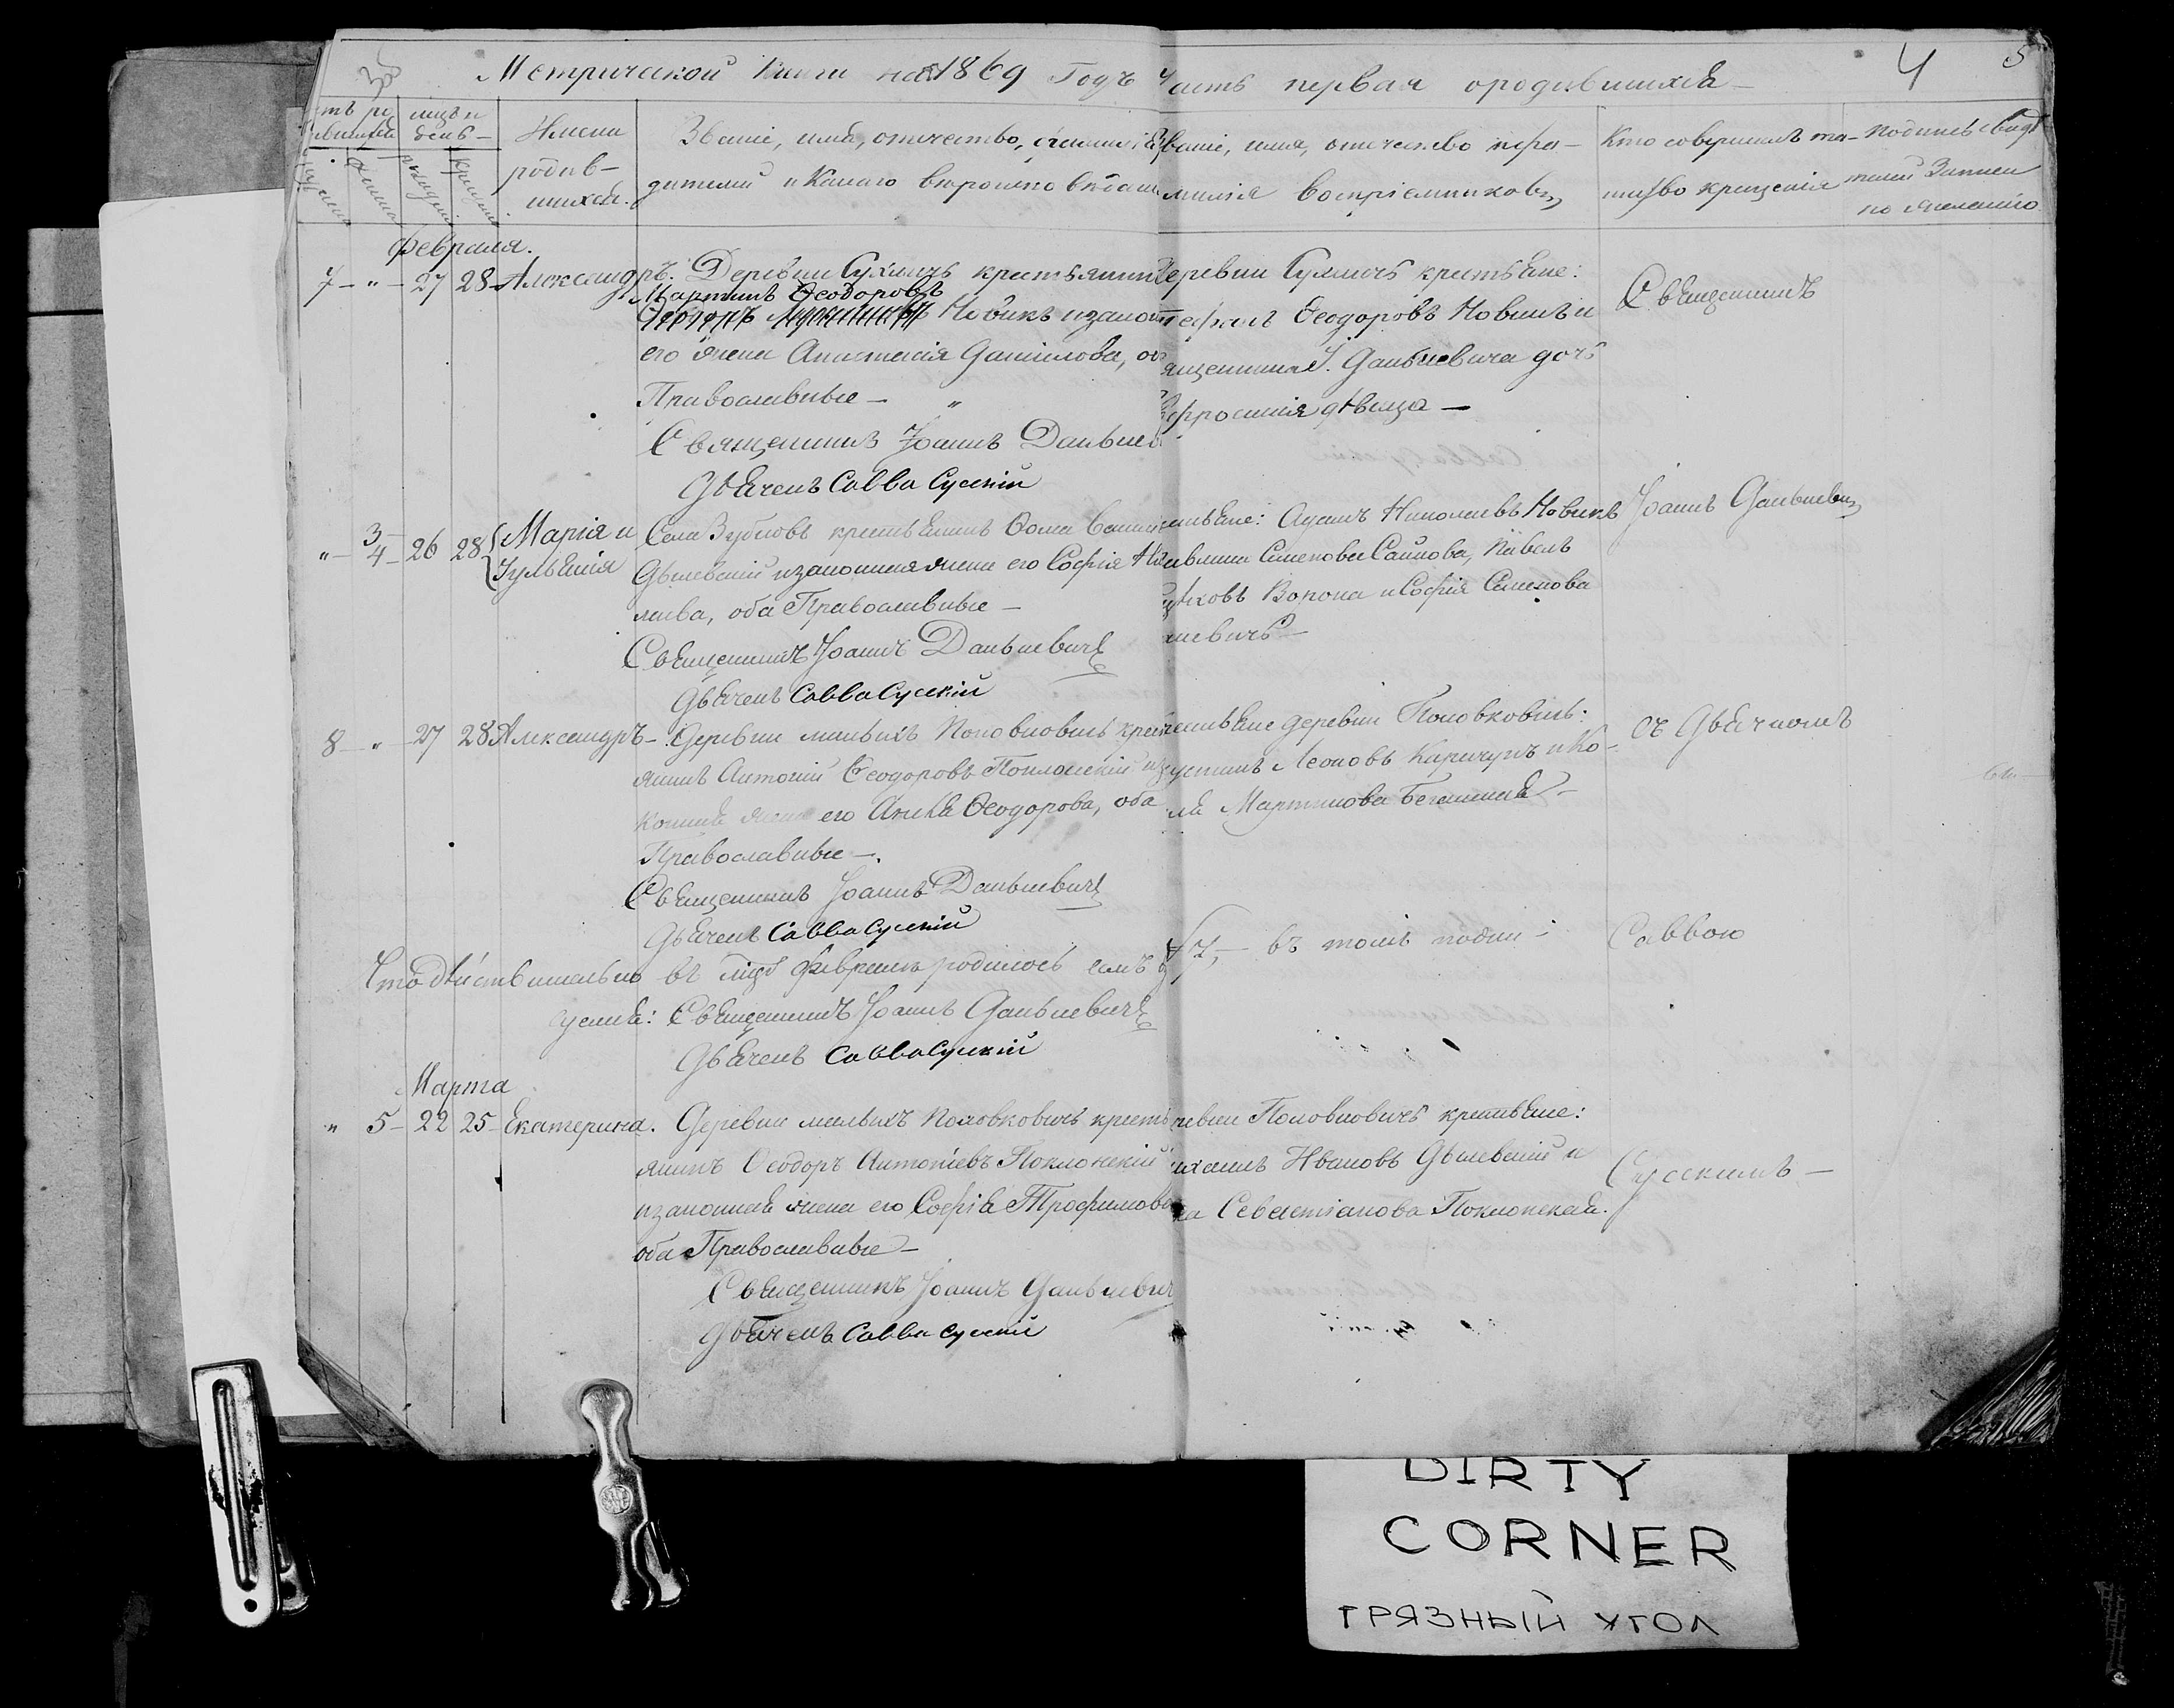 Метрической Книги на 1869 Годъ Часть первая о родившихся
4
5
Имена родив-
шихся.
Званіе, имя, отчество,
дителей и Какого вѣроисповѣдан
званіе, имя, отечество и фа-
милія воспріемниковъ
Кто совершилъ та-
инство крещенія
подпись свидѣ
телей Записи
по желанію
Февраля.
7 — " — 27 28 Александръ. Деревни Сухличъ крестьянинъ
Мартинъ Ѳеодоровъ
Новикъ и законн
его жена Анастасія Данилова, об
Православные —
Священникъ Іоаннъ Данькев
Дьячекъ Савва Сусскій
деревни Сухличъ крестьяне:
Стефанъ Ѳеодоровъ Новикъ и
священника І. Данькевича дочь
Ефросинія дѣвица —
Священникъ
" — 3 — 4 — 26 28 Марія и
Іуліанія
Села Зубковъ крестьянинъ Ѳома
Дылевскій и законная жена его Софія Ни
лаева, оба Православные —
Священникъ Іоаннъ Данькевичъ
Дьячекъ Савва Сусскій
крестьяне: Адамъ Николаевъ Новикъ
Семенова Саикова, Павелъ
Ворона и Софія Семенова
левичъ —
Іоаннъ Данькевич
8 — " — 27 28 Александръ — Деревни малыхъ Половковичъ крест
янинъ Антоній Ѳеодоровъ Поклонскій и за
конная жена его Анна Ѳеодорова, оба
Православные —.
Священникъ Іоаннъ Данькевичъ
Дьячекъ Савва Сусскій
крестьяне деревни Половковичъ:
устинъ Леоновъ Карачунъ и Ко-
Мартинова
съ Дьячкомъ
Что дѣйствительно въ мцѣ Февралѣ родилось семъ
/7, — въ томъ подпи-
Саввою
суемся: Священникъ Іоаннъ Данькевичъ
Дьячекъ Савва Сусскій
Марта
" 5 — 22 25 — Екатерина. Деревни малыхъ Половковичъ кресть
янинъ Ѳеодоръ Антоніевъ Поклонскій
и законная жена его Софія Трофимова
оба Православные —
Священникъ Іоаннъ Данькевич
Дьячекъ Савва Сусскій
ревни Половковичъ крестьяне:
Ивановъ Дылевскій и
на Севастіанова Поклонская.
Сусскимъ —
DIRTY
CORNER
ГРЯЗНЫЙ УГОЛ